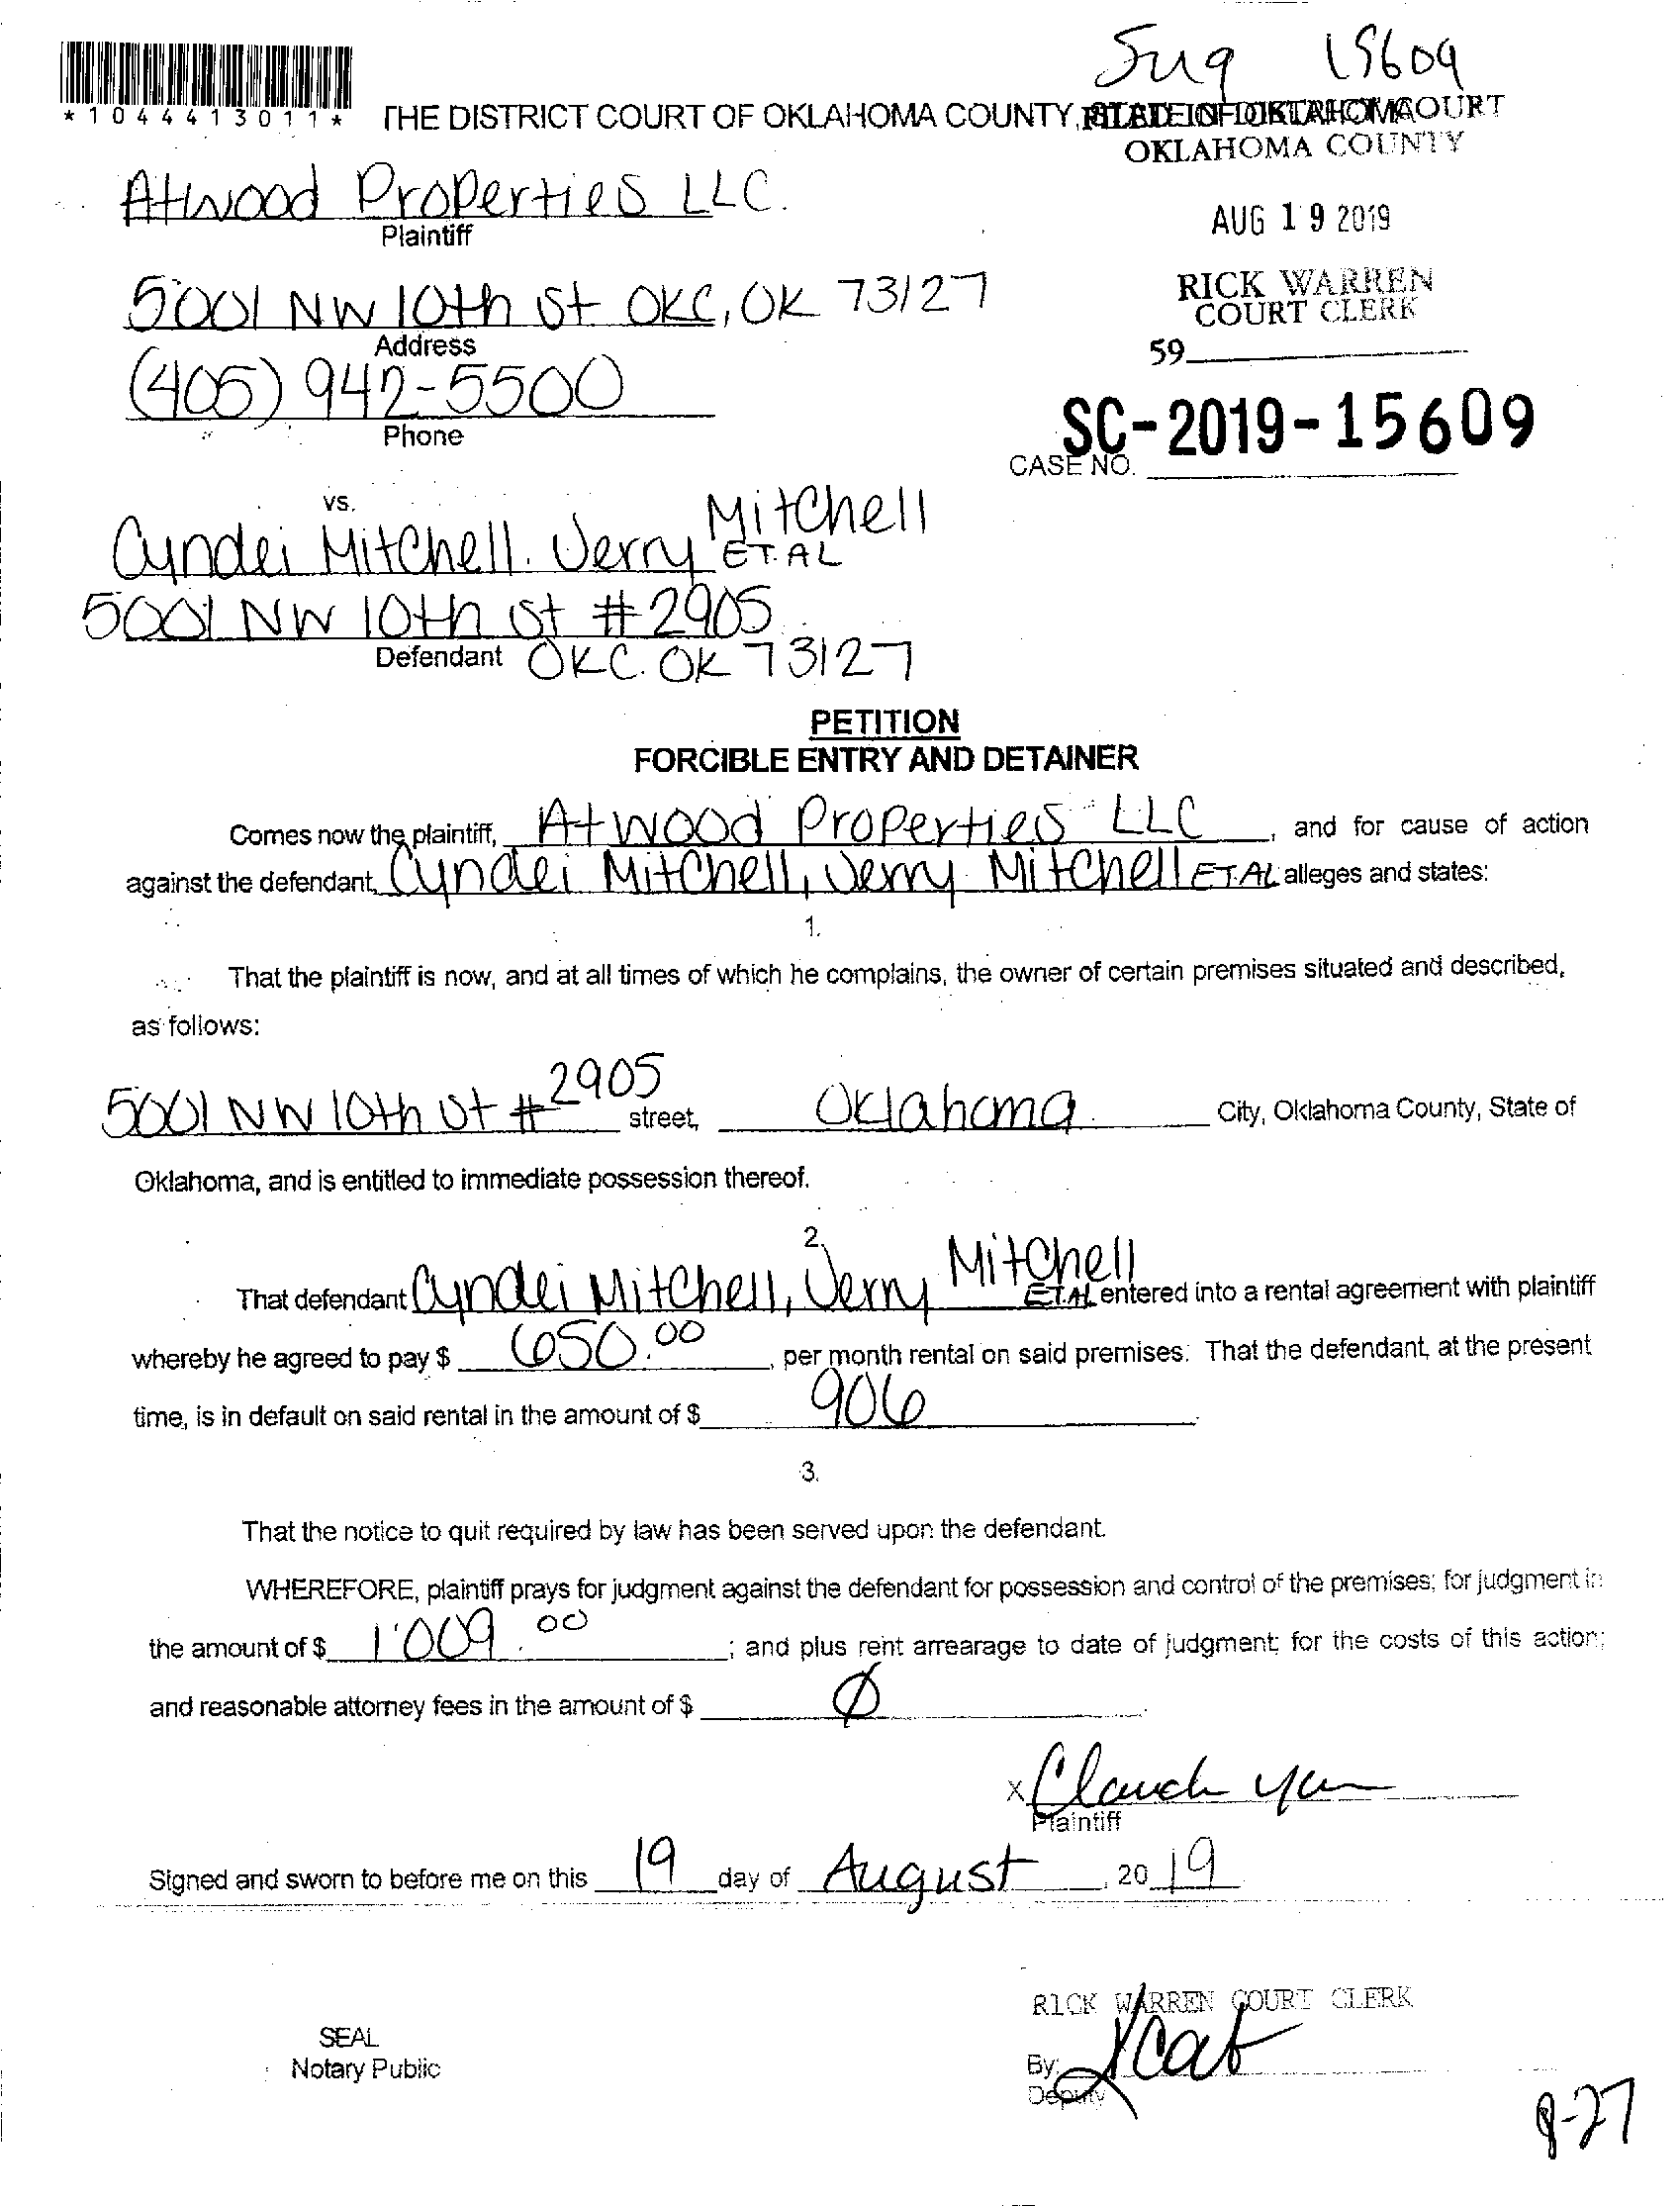 Sug 15609
*1044413011*
THE DISTRICT COURT OF OKLAHOMA COUNTY, STATE OF OKLAHOMA
FILED IN DISTRICT COURT
OKLAHOMA COUNTY
Atwood Properties LLC.
Plaintiff
AUG 19 2019
5001 NW 10th St OKC, OK 73127
Address
RICK WARREN
COURT CLERK
59
(405) 942-5500
Phone
SC-2019-15609
CASE NO.
vs.
Cyndei Mitchell. Jerry Mitchell
ET.AL
5001 NW 10th St #2905
Defendant OKC. OK 73127
PETITION
FORCIBLE ENTRY AND DETAINER
Comes now the plaintiff, Atwood Properties LLC, and for cause of action
against the defendant, Cyndei Mitchell, Jerry Mitchell ET.AL alleges and states:
1.
That the plaintiff is now, and at all times of which he complains, the owner of certain premises situated and described,
as follows:
5001 NW 10th St # 2905 street, Oklahoma City, Oklahoma County, State of
Oklahoma, and is entitled to immediate possession thereof.
2.
That defendant Cyndei Mitchell, Jerry Mitchell ET.AL entered into a rental agreement with plaintiff
whereby he agreed to pay $ 650.00, per month rental on said premises: That the defendant, at the present
time, is in default on said rental in the amount of $ 906
3.
That the notice to quit required by law has been served upon the defendant.
WHEREFORE, plaintiff prays for judgment against the defendant for possession and control of the premises; for judgment in
the amount of $ 1'009.00; and plus rent arrearage to date of judgment; for the costs of this action;
and reasonable attorney fees in the amount of $ Ø
x
Plaintiff
Signed and sworn to before me on this 19 day of August, 2019
RICK WARREN COURT CLERK
SEAL
Notary Public
By:
Deputy
8-27